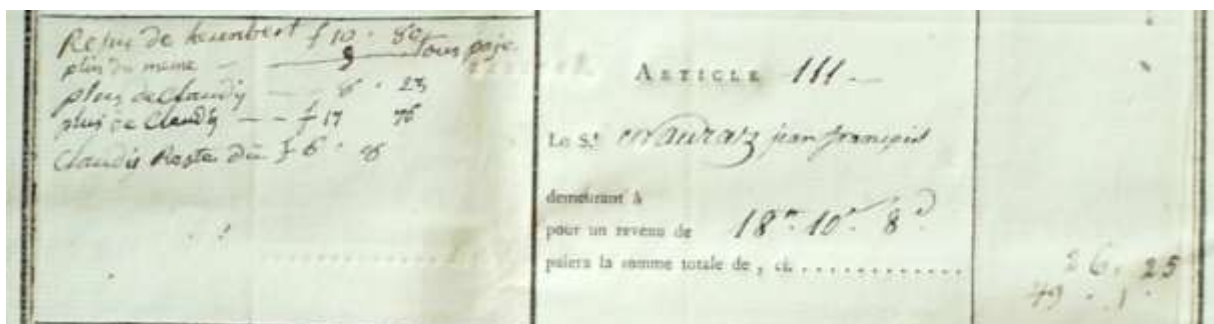 Reçu de humbert f 10 · 80
plus du meme — 9 — tous paje
plus de Claudy — — 6 · 23
plus de Claudy — — f 17 76
Claudy Reste dû f 6 · 96
ARTICLE 111
Le S.r jean françois
demeurant à
pour un revenu de 18 10 8
paiera la somme totale de , ci . . . . . . . . . . . .
26 . 25
49 . 1 .